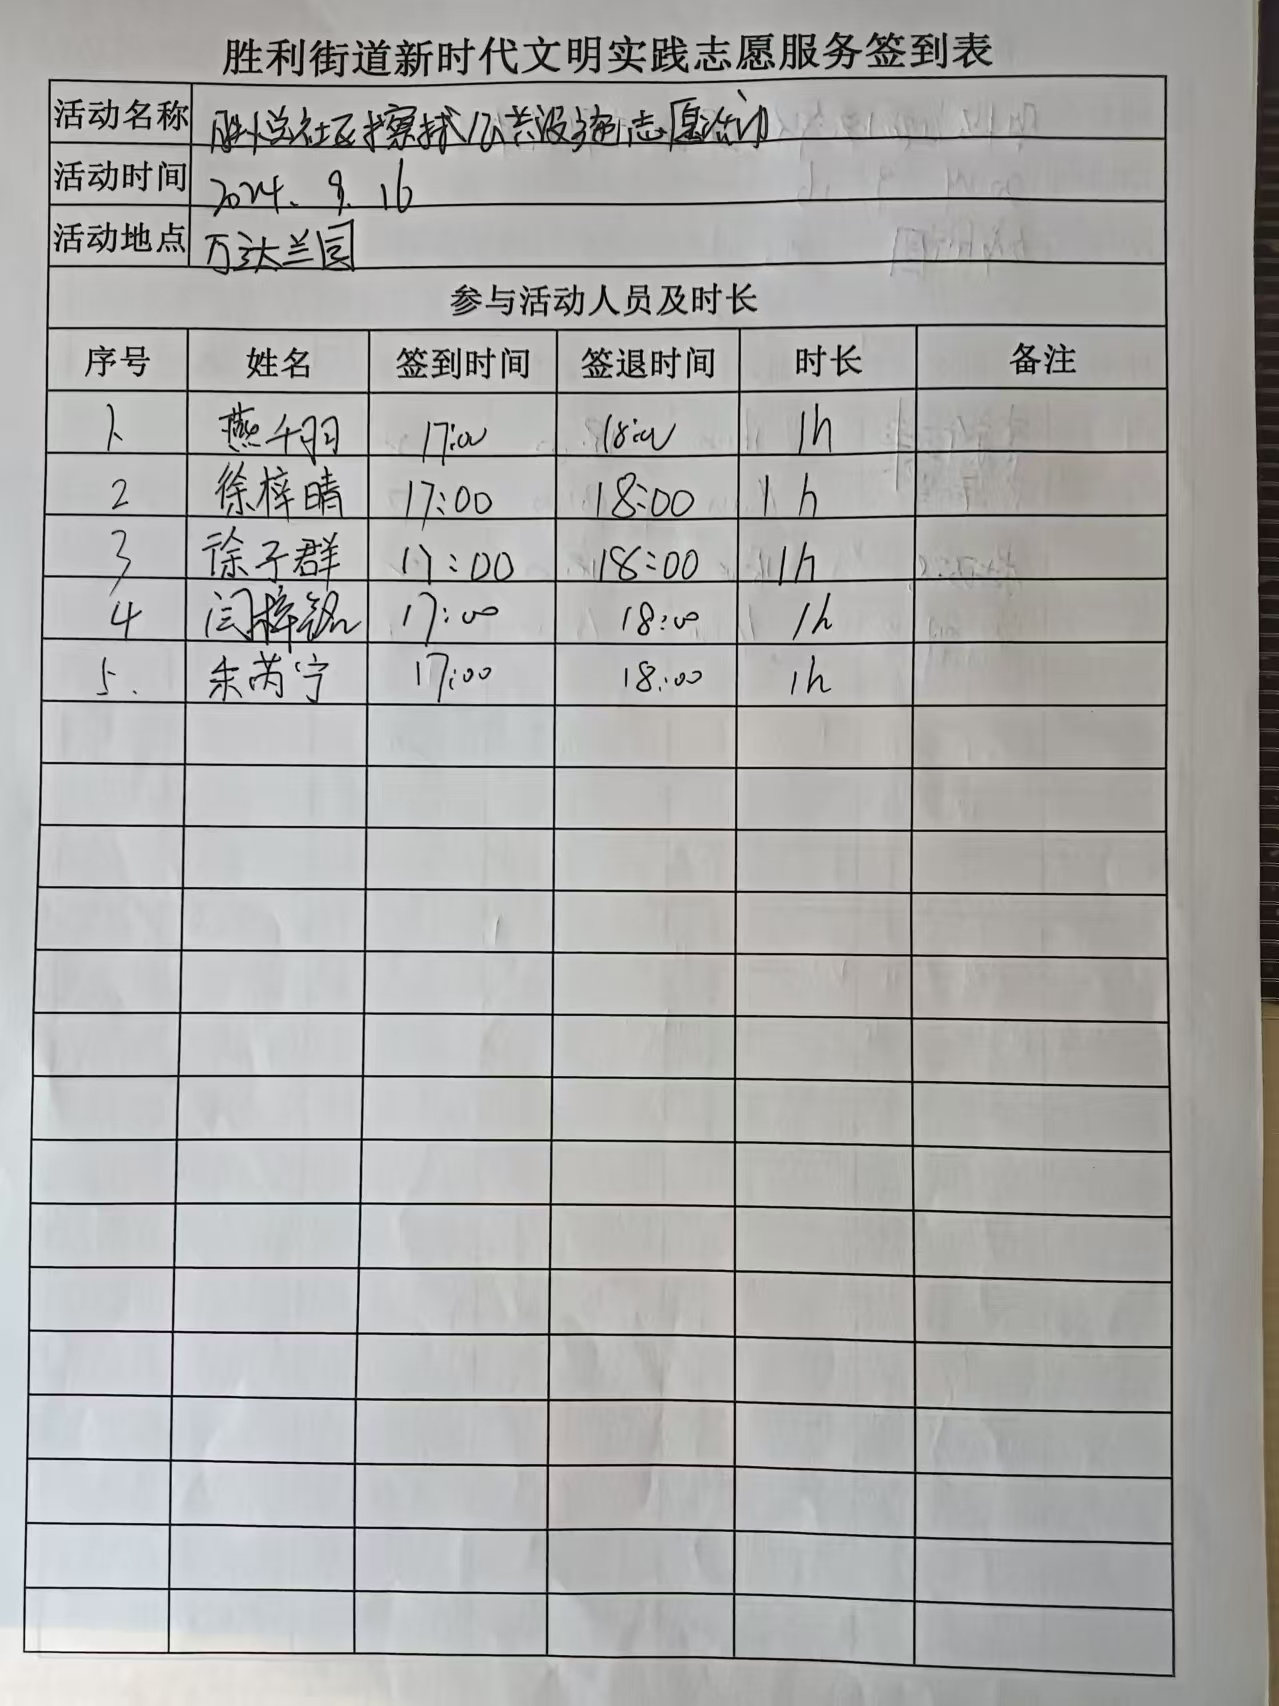 胜利街道新时代文明实践志愿服务签到表
活动名称 社区擦拭公共设施志愿活动
活动时间 2024. 9. 16
活动地点 万达兰园
参与活动人员及时长
序号 姓名 签到时间 签退时间 时长 备注
1、 燕千羽 17:00 18:00 1h
2 徐梓晴 17:00 18:00 1h
3 徐子群 17:00 18:00 1h
4 闫梓铭 17:00 18:00 1h
5. 朱芮宁 17:00 18:00 1h